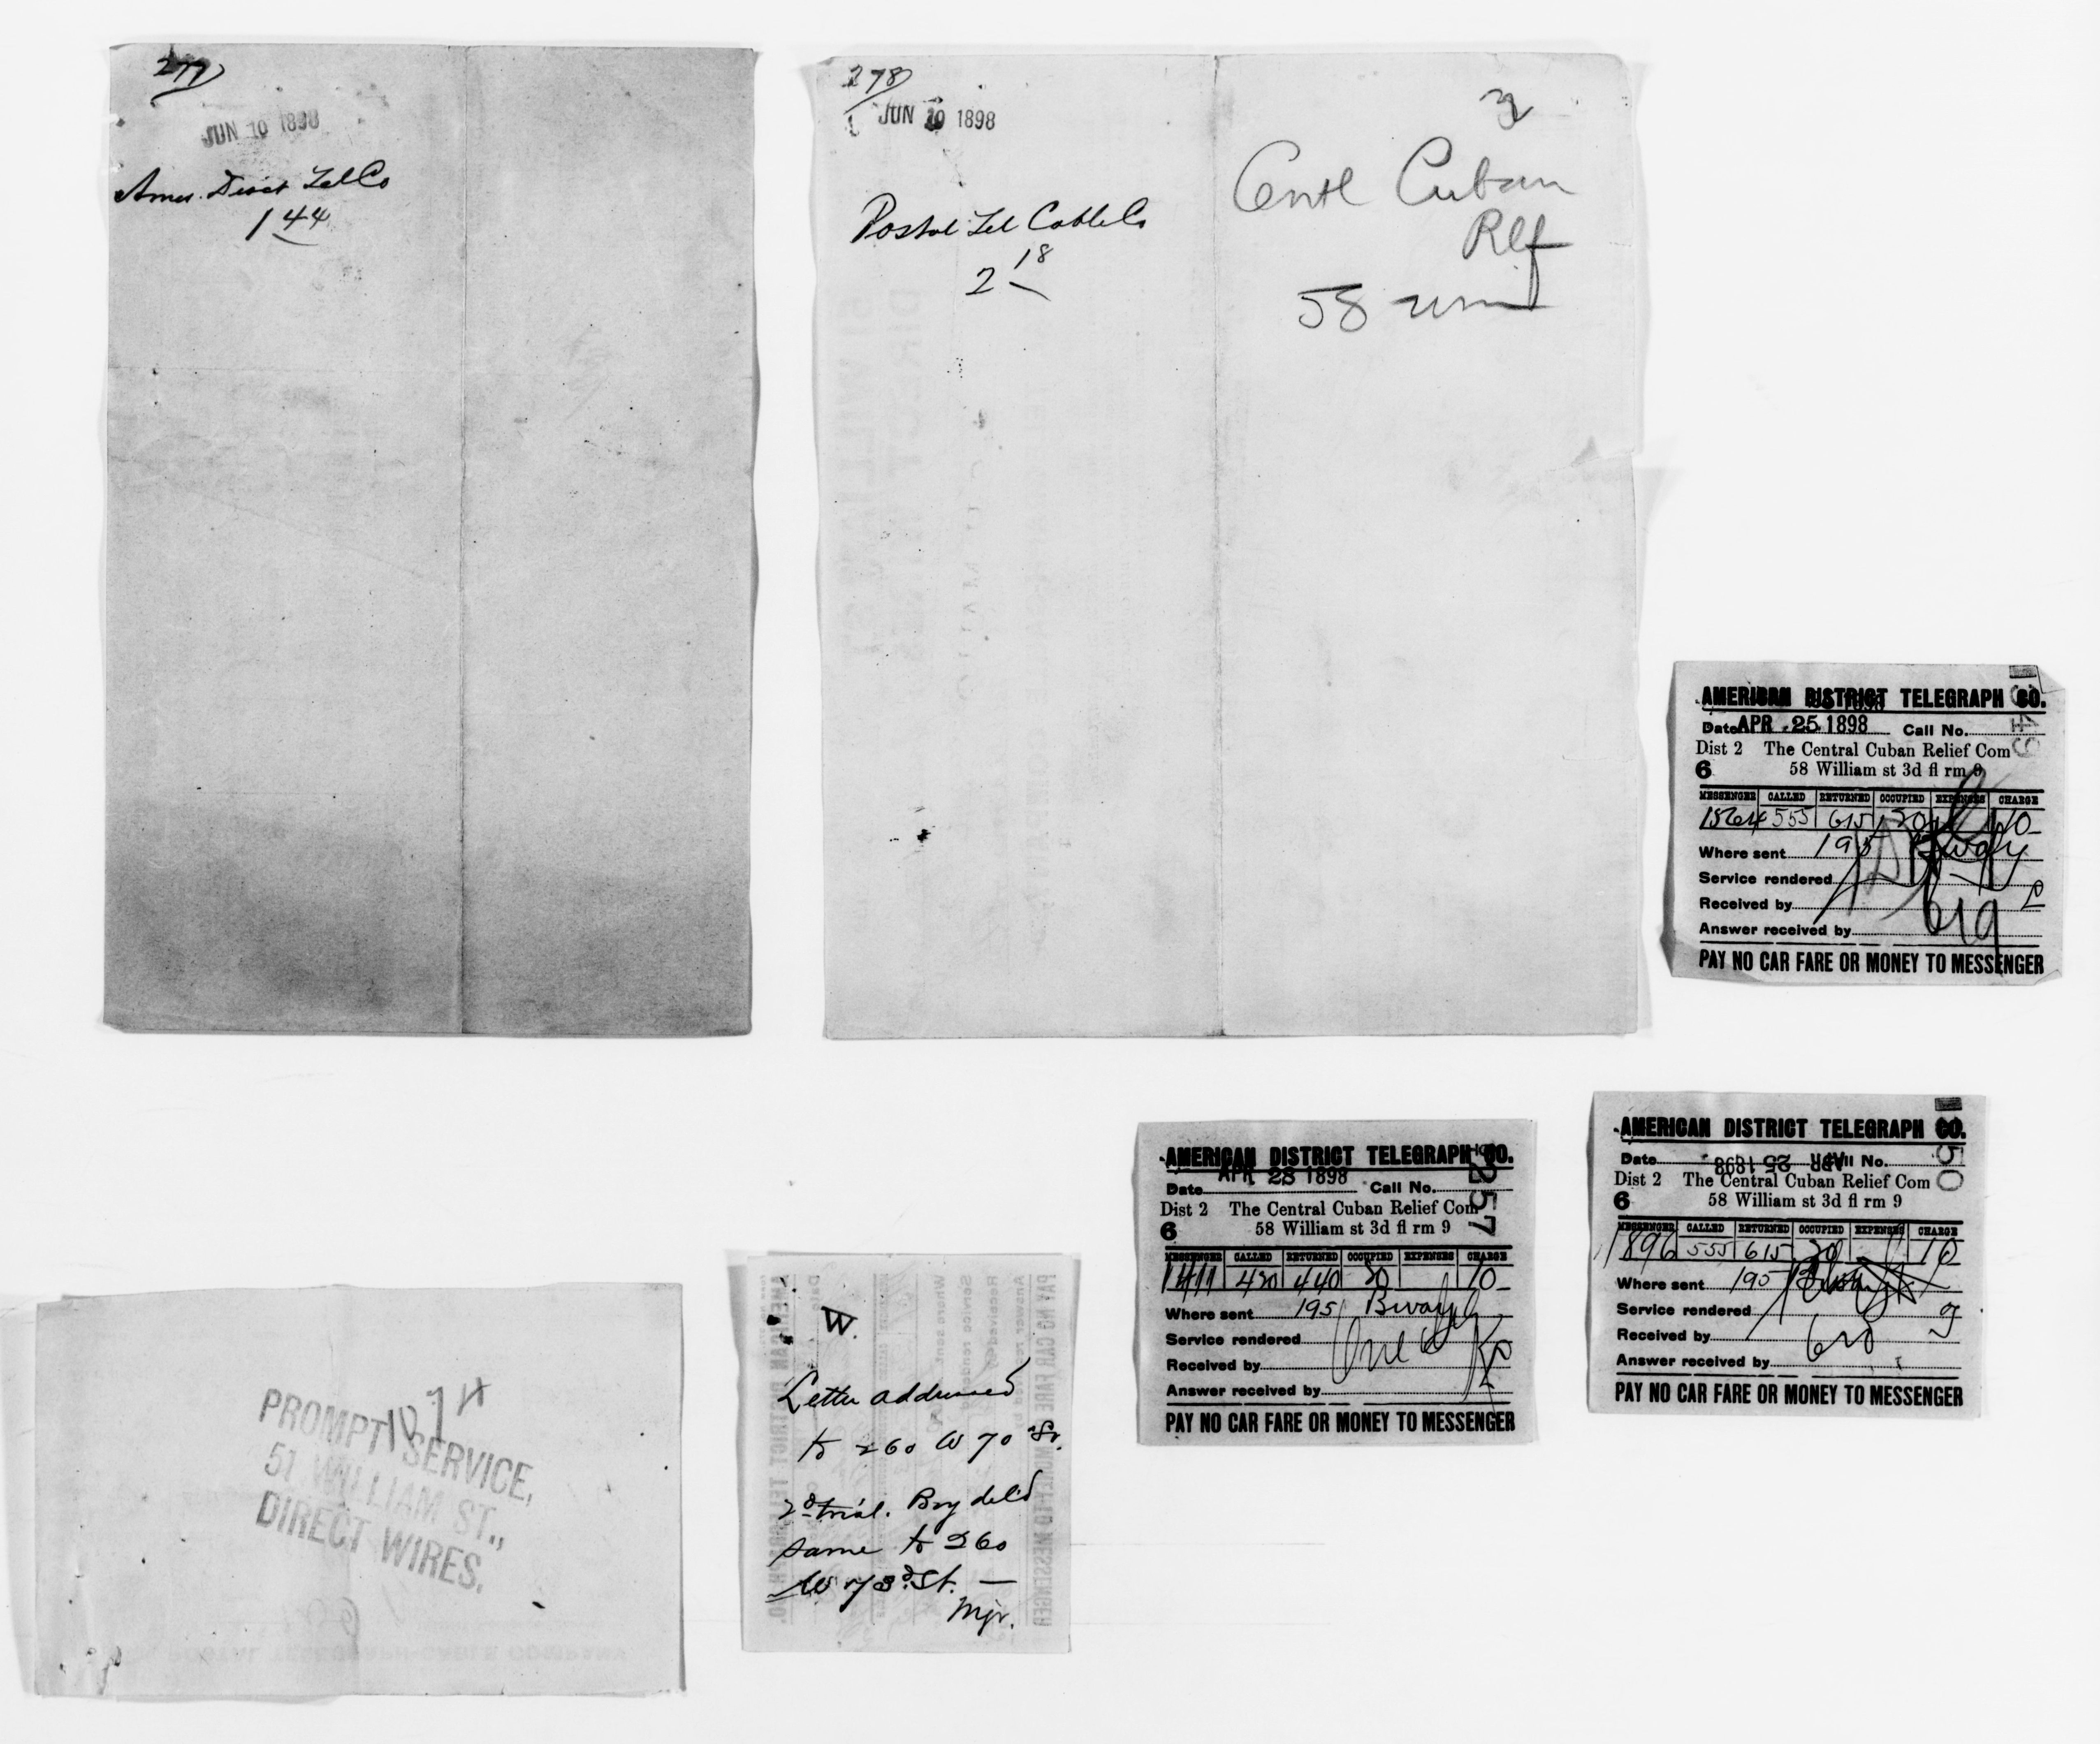 277
JUN 10 1898
Amer. Distct Tel Co
1 44
278
JUN 10 1898
Postal Tel Cable Co
2 18
Centl Cuban
Rlf
58 Wm
AMERICAN DISTRICT TELEGRAPH CO.
Date APR 25 1898 Call No.
Dist 2 The Central Cuban Relief Com
6 58 William st 3d fl rm 9
MESSENGER CALLED RETURNED OCCUPIED EXPENSES CHARGE
1564 555 615 20 10
Where sent 195 Bway
Service rendered
Received by
Answer received by
PAY NO CAR FARE OR MONEY TO MESSENGER
AMERICAN DISTRICT TELEGRAPH CO.
Date APR 28 1898 Call No.
Dist 2 The Central Cuban Relief Com
6 58 William st 3d fl rm 9
1257
MESSENGER CALLED RETURNED OCCUPIED EXPENSES CHARGE
1411 420 440 20 10
Where sent 195 Bway
Service rendered
Received by
Answer received by
PAY NO CAR FARE OR MONEY TO MESSENGER
AMERICAN DISTRICT TELEGRAPH CO.
Date APR 25 1898 Call No.
Dist 2 The Central Cuban Relief Com
6 58 William st 3d fl rm 9
MESSENGER CALLED RETURNED OCCUPIED EXPENSES CHARGE
1896 555 615 20 10
Where sent 195
Service rendered
Received by
Answer received by
PAY NO CAR FARE OR MONEY TO MESSENGER
PROMPT SERVICE,
51 WILLIAM ST.,
DIRECT WIRES.
W.
Letter addressed
to 260 W 70 St.
2d trial. Boy deld
same to 260
W 73d St. —
Mgr.